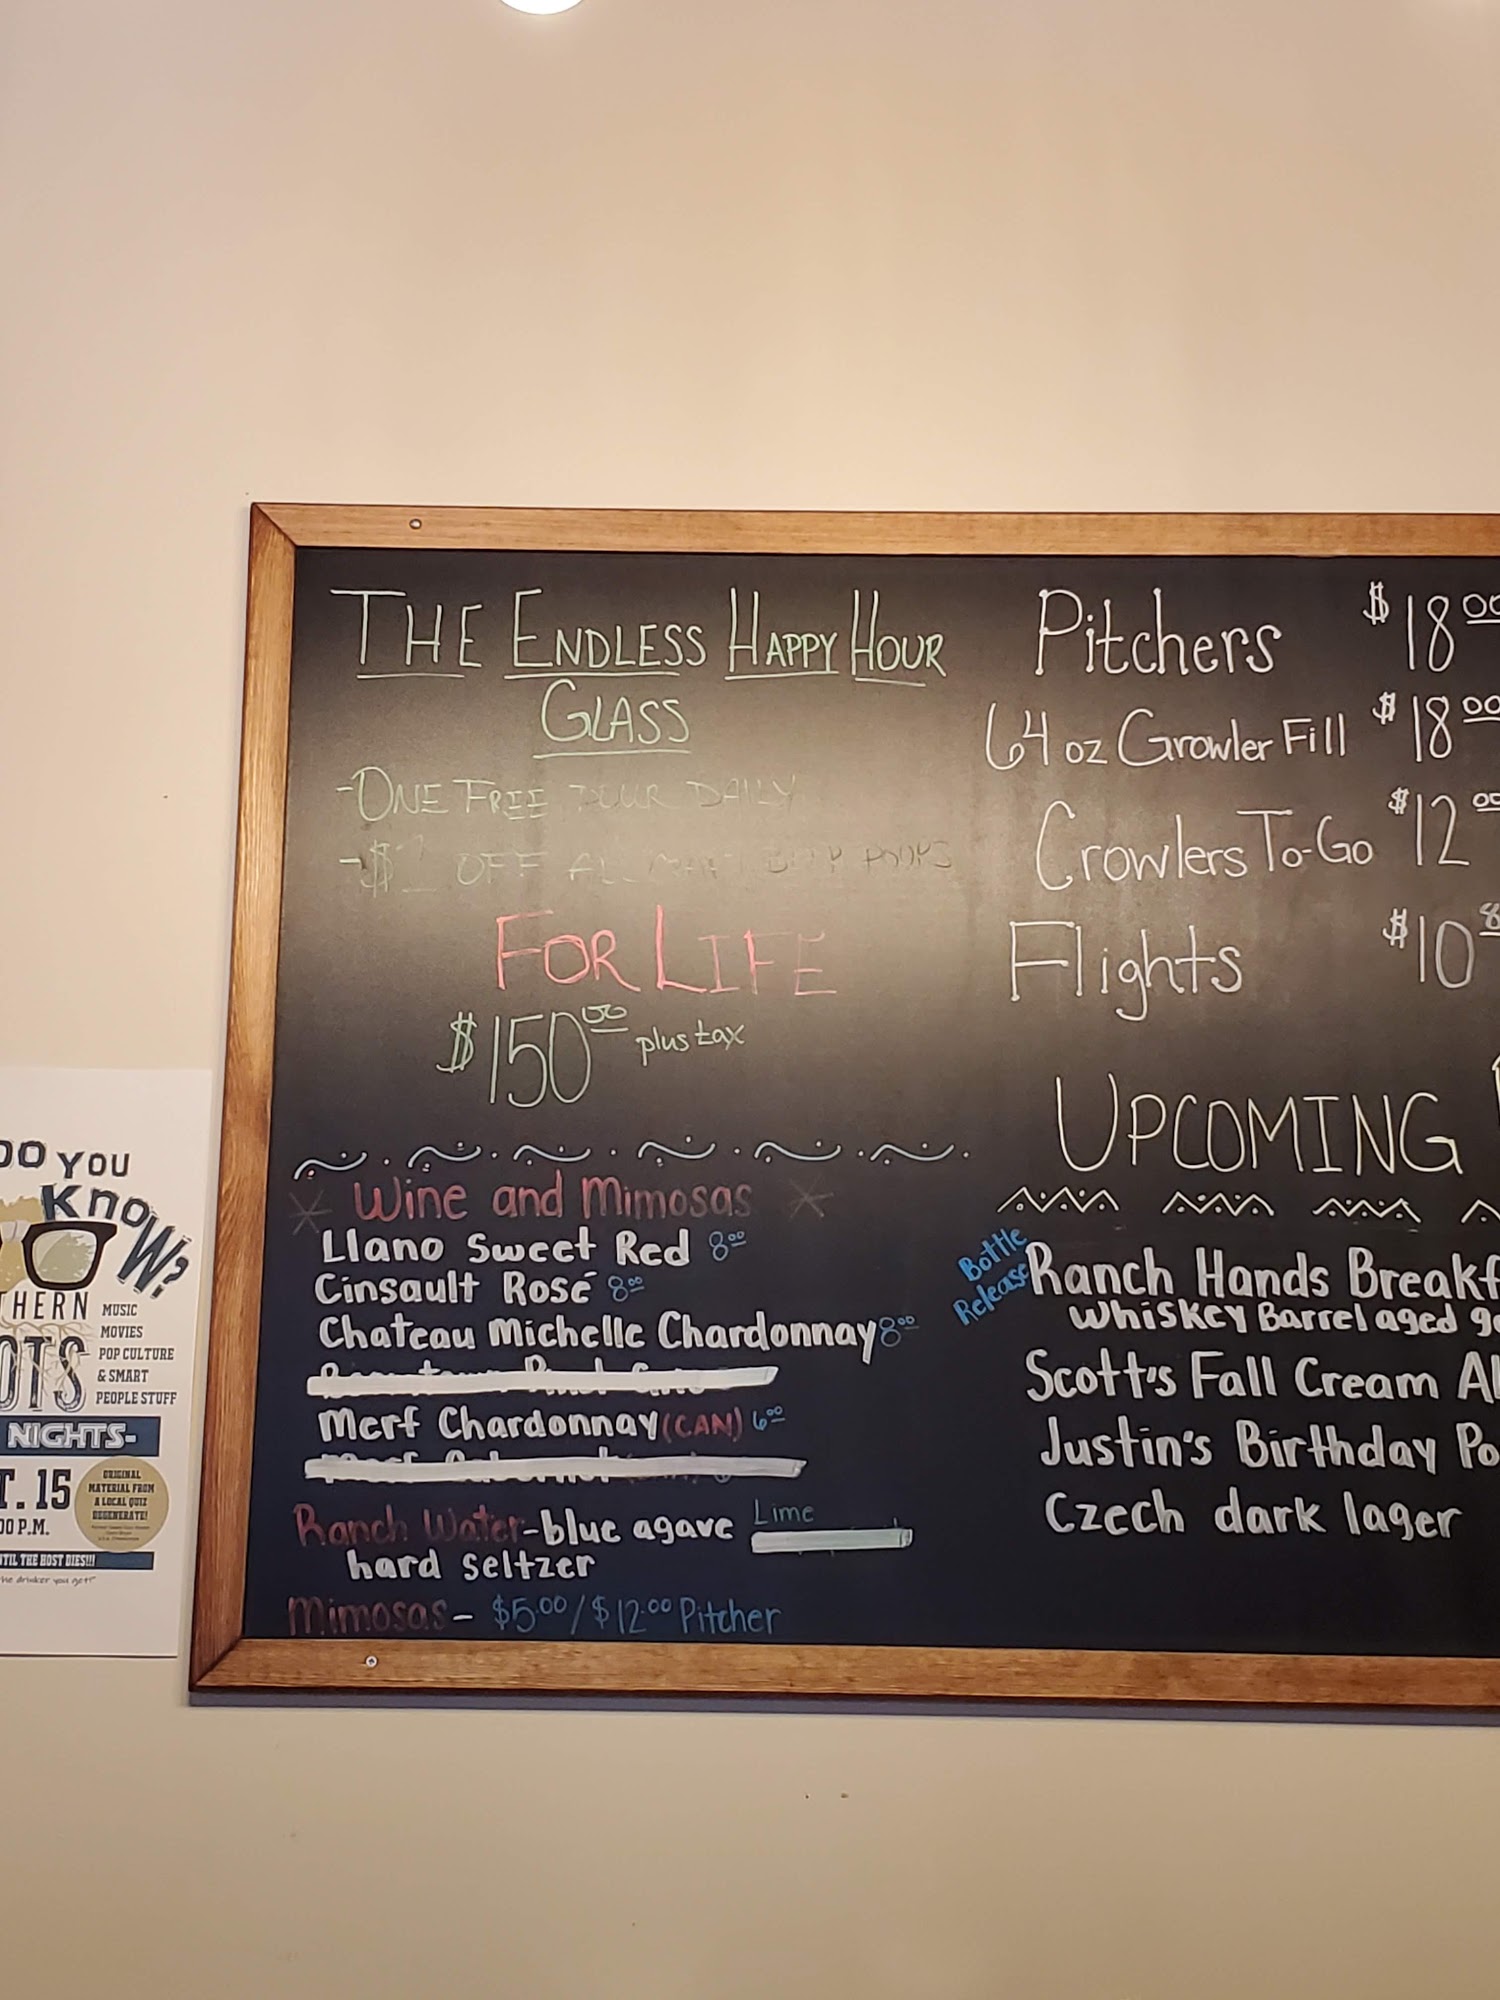 THE ENDLESS HAPPY HOUR
GLASS
-ONE FREE POUR DAILY
OFF
FOR LIFE
$150.00 plus tax
Wine and Mimosas
Llano Sweet Red 8.00
Cinsault Rosé 8.00
Chateau Michelle Chardonnay 8.00
Merf Chardonnay (CAN) 6.00
Ranch Water-blue agave Lime
hard seltzer
Mimosas- $5.00/$12.00 Pitcher
Pitchers $18.00
64 oz Growler Fill $18.00
Crowlers To-Go $12.00
Flights $10
UPCOMING
Bottle
Release
Ranch Hands Breakf
Whiskey Barrel aged
Scott's Fall Cream Al
Justin's Birthday Po
Czech dark lager
DO YOU
KNOW?
HERN
OTS
MUSIC
MOVIES
POP CULTURE
& SMART
PEOPLE STUFF
NIGHTS-
T. 15
00 P.M.
ORIGINAL
MATERIAL FROM
A LOCAL QUIZ
DEGENERATE!
TIL THE HOST DIES!!!
he drinker you get!"